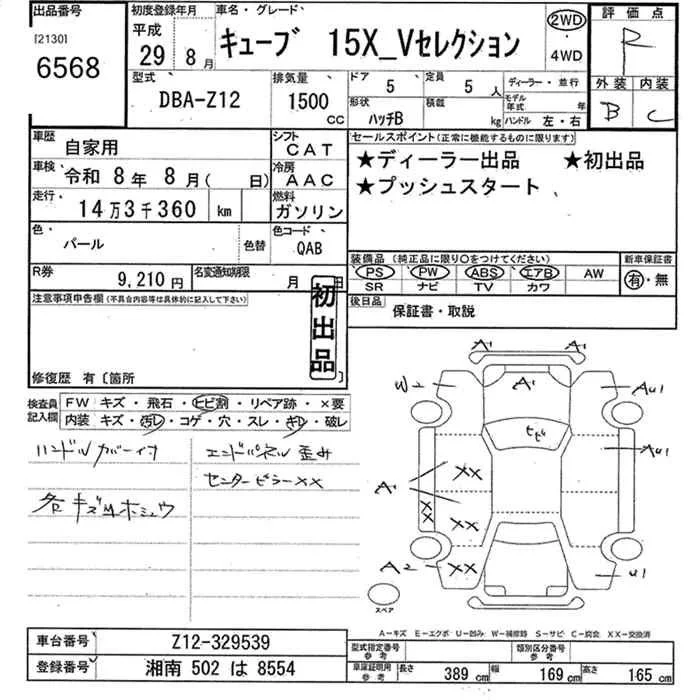 出品番号 初度登録年月 車名・グレード 評価点
[2130] 6568
平成 29年 8月 キューブ 15X_Vセレクション 2WD 4WD R
型式 DBA-Z12 排気量 1500 CC
ドア 5 定員 5 人 ディーラー・並行
形状 ハッチB 積載 kg モデル年式 年 ハンドル 左・右
外装 内装
B C
車歴 自家用 シフト CAT
車検 令和 8年 8月( 日) 冷房 AAC
走行 14万3千360 km 燃料 ガソリン
色 パール 色替 色コード QAB
R券 9,210円 名変通知期限 月 日
セールスポイント(正常に機能するものに限ります)
★ディーラー出品 ★初出品
★プッシュスタート
装備品 (純正品に限り〇をつけてください) 新車保証書
PS PW ABS エアB AW 有・無
SR ナビ TV カワ
後日品 保証書・取説
注意事項申告欄(不具合内容等は具体的に記入して下さい)
初出品
修復歴 有〔箇所 〕
検査員記入欄
FW キズ・飛石・ヒビ割・リペア跡・×要
内装 キズ・汚レ・コゲ・穴・スレ・キレ・破レ
ハンドルカバー付
各キズ凹ホシュウ
エンドパネル歪み
センターピラーXX
A1 A1
W2 A1 AU1
ヒビ
AU1
A1 XX
XX XX
A2 XX U1
スペア
A-キズ E-エクボ U-凹み W-補修跡 S-サビ C-腐食 XX-交換済
車台番号 Z12-329539
登録番号 湘南 502 は 8554
型式指定番号 参考 類別区分番号 参考
車庫証明用 参考 長さ 389 cm 幅 169 cm 高さ 165 cm